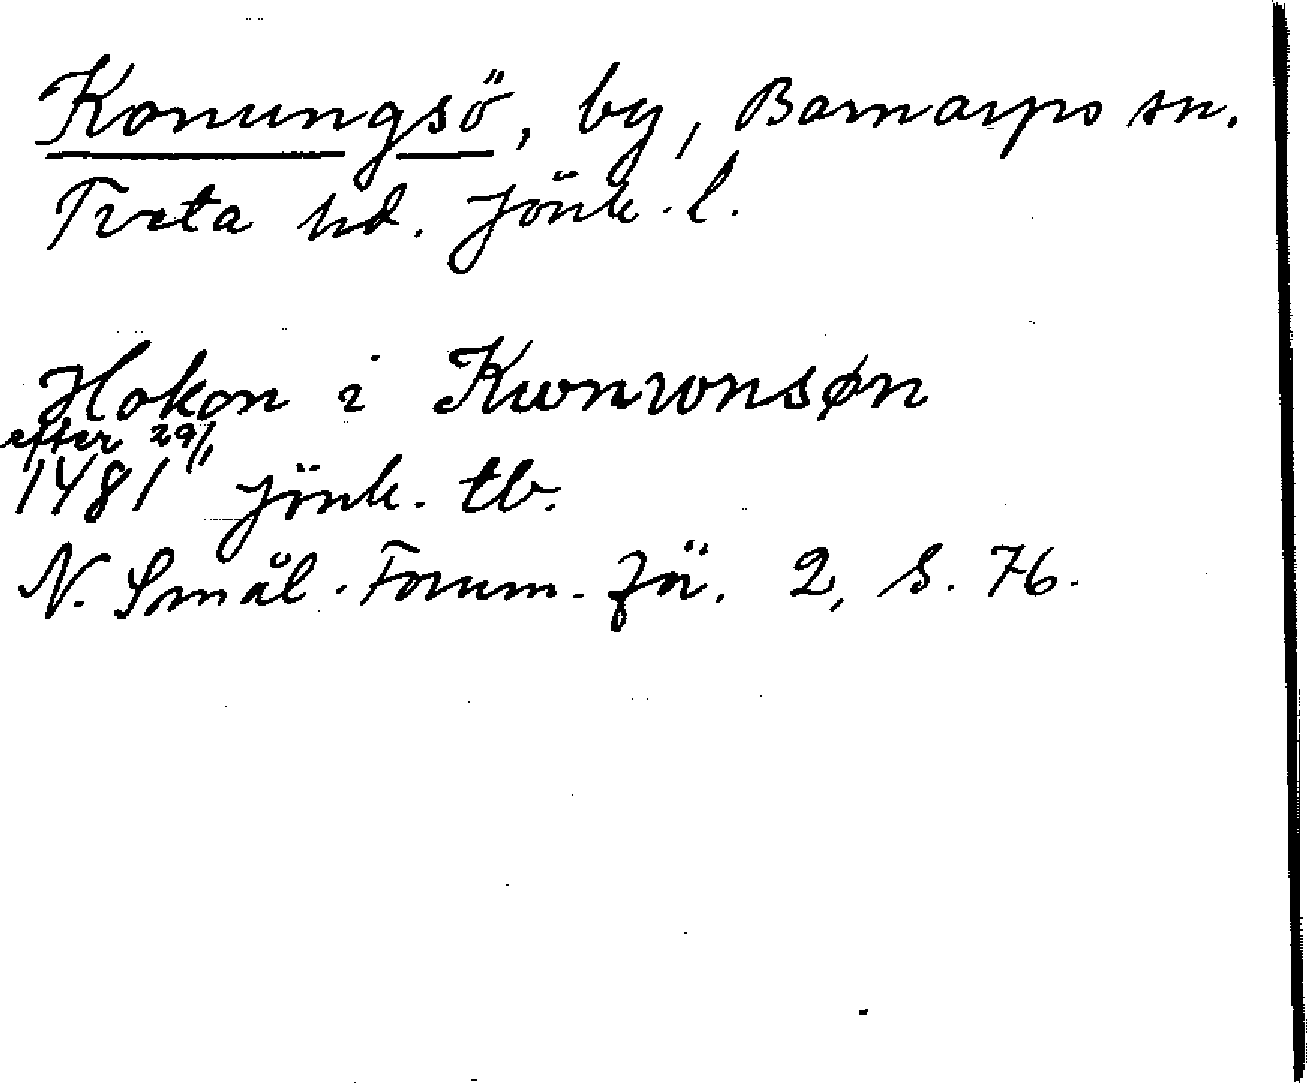 Konungsö, by, Barnarps sn.
Tveta hd. Jönk. l.
Hokon i Kwnwnsøn
efter 29/11
1481 Jönk. tb.
N. Smål. Fornm. för. 2, S. 76.